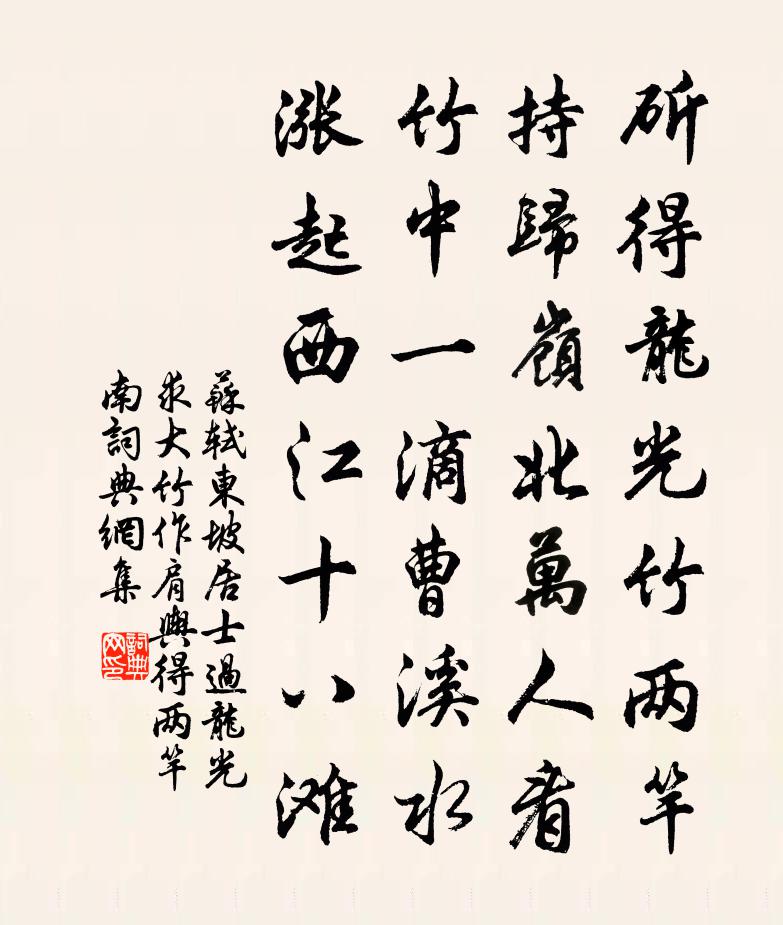 斫得龍光竹两竿
持歸嶺北萬人看
竹中一滴曹溪水
漲起西江十八滩
蘇軾東坡居士過龍光
求大竹作肩輿得两竿
南詞典網集
詞典网印